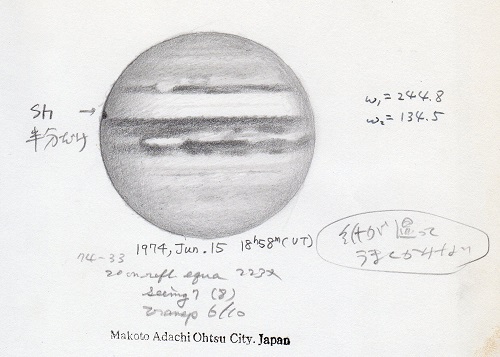 Sh →
半分だけ
ω₁ = 244.8
ω₂ = 134.5
1974, Jun. 15 18ʰ58ᵐ(UT)
74-33
20cm refl. equa 223x
seeing 7 (8)
transp 6/10
紙が湿って
うまくかけない
Makoto Adachi Ohtsu City. Japan